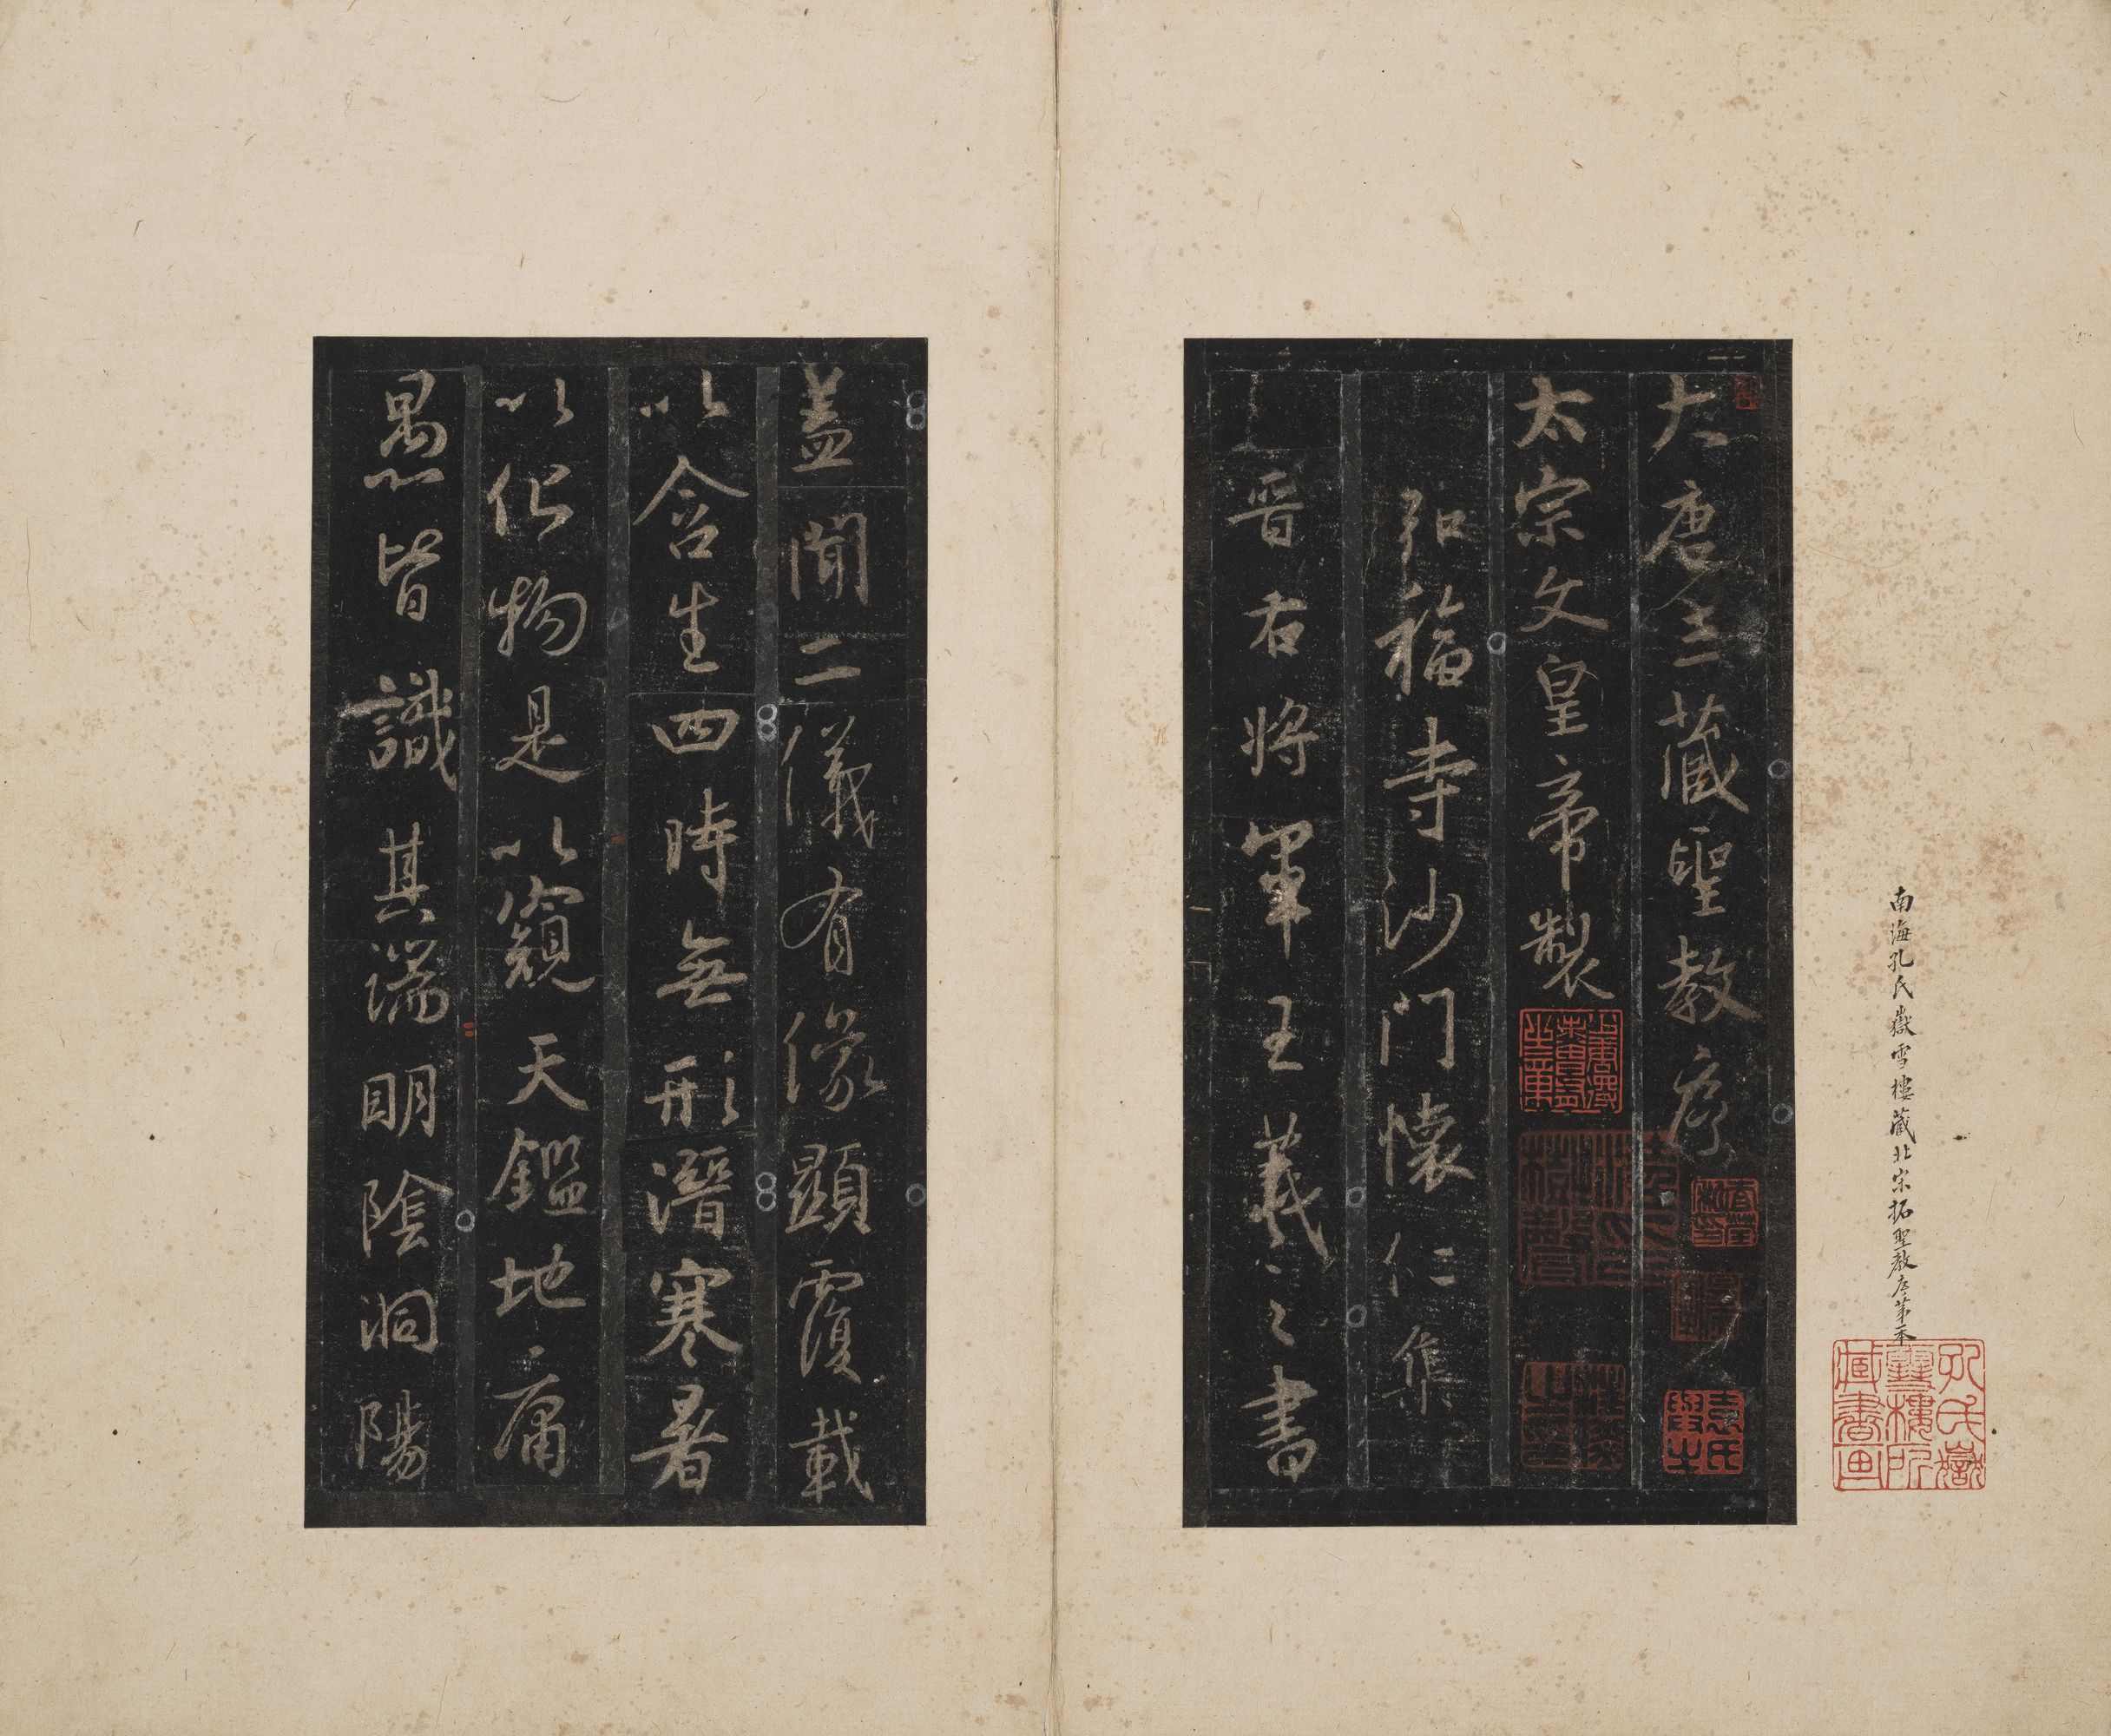 南海孔氏嶽雪樓藏北宋拓聖教序第一本
孔氏嶽雪樓所藏書畫
大唐三藏聖教序
太宗文皇帝製
弘福寺沙門懷仁集
晉右將軍王羲之書
蓋聞二儀有像顯覆載
以含生四時無形潛寒暑
以化物是以窺天鑑地庸
愚皆識其端明陰洞陽